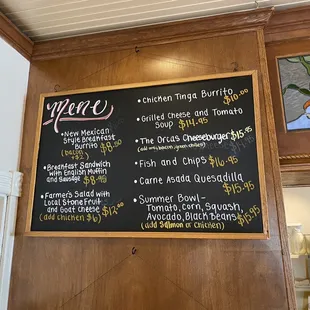 Menu
• New Mexican
Style Breakfast
Burrito
(bacon
+$2) $8.50
• Breakfast Sandwich
with English Muffin
and Sausage $8.95
• Farmer's Salad with
Local Stone Fruit
and Goat Cheese
(add chicken $6) $12.00
• Chicken Tinga Burrito $10.00
• Grilled Cheese and Tomato
Soup $14.95
• The Orcas Cheeseburger $15.95
• Fish and Chips $16.95
• Carne Asada Quesadilla
$15.95
• Summer Bowl -
Tomato, Corn, Squash,
Avocado, Black Beans $15.95
(add Salmon or Chicken)